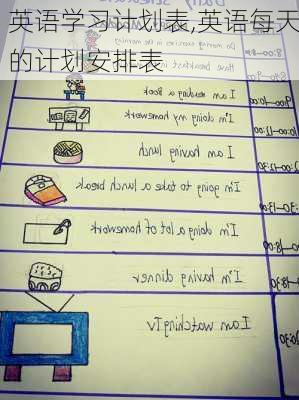 英语学习计划表,英语每天
的计划安排表
Have breakfast
9:00-10:00 I am reading a Book
I'm doing my homework
I am having lunch
I'm going to take a lunch break
I'm doing a lot of homework
-18:30 I'm having dinner
20:30 I am watching TV